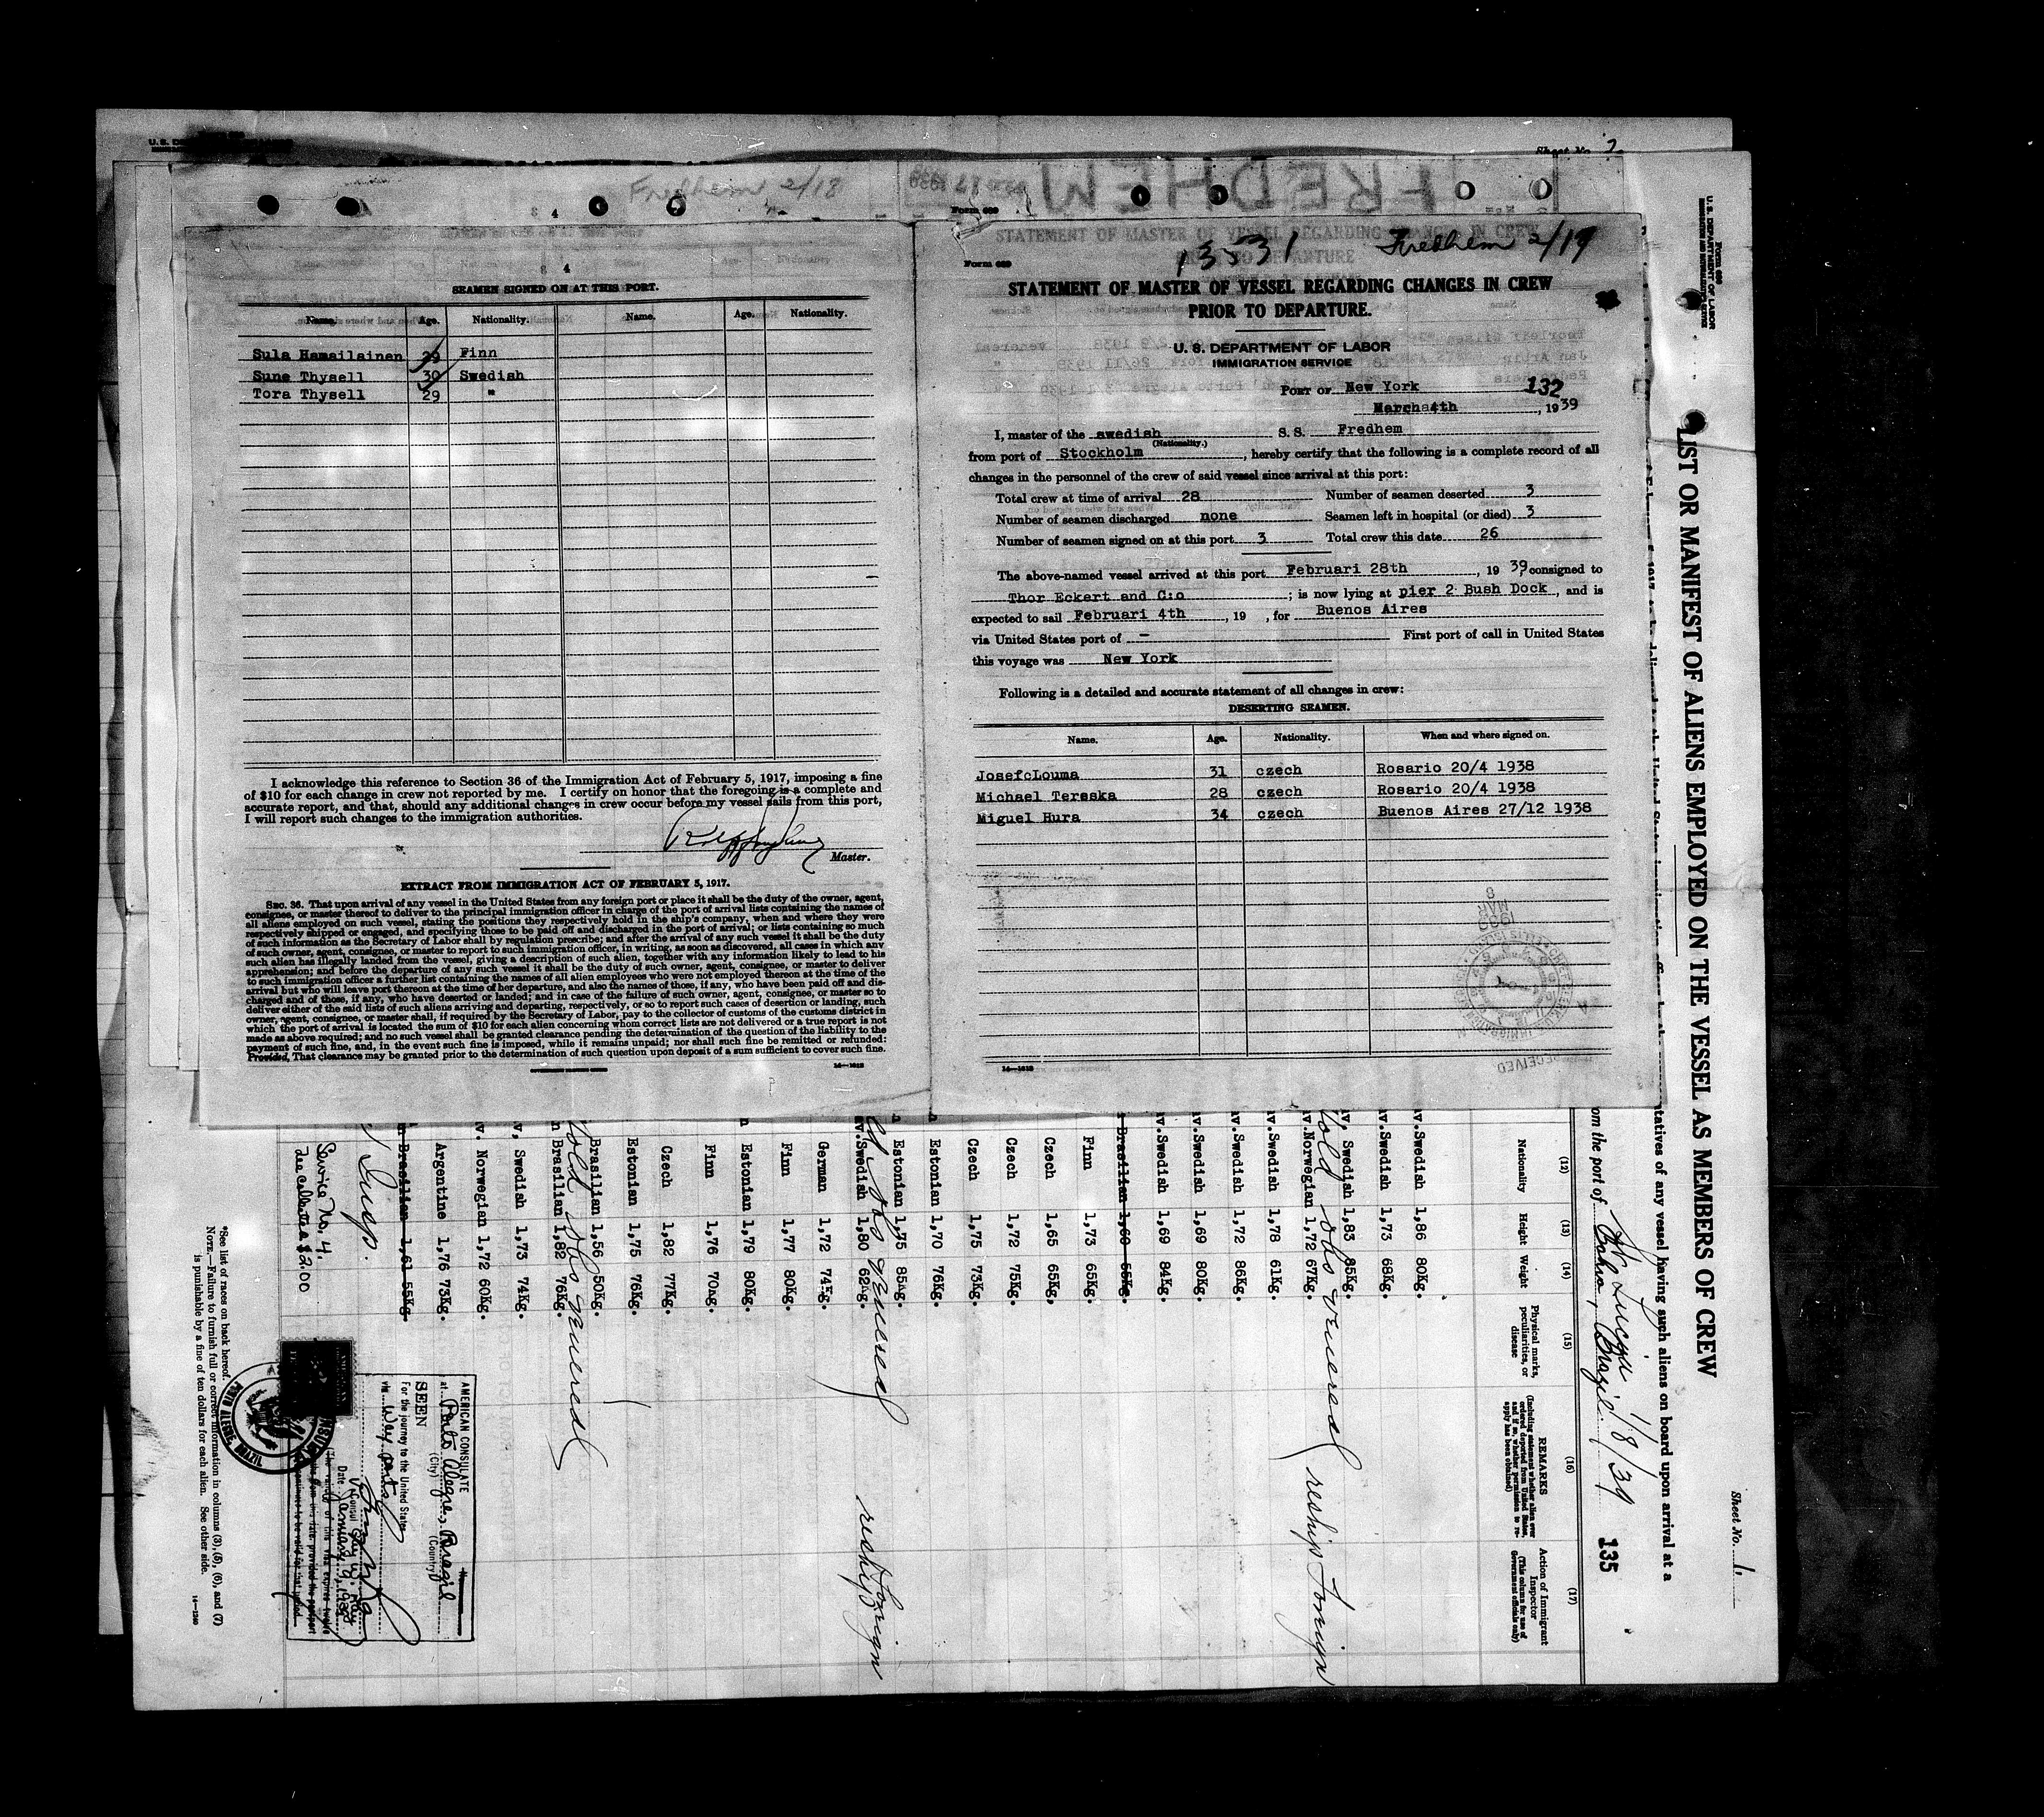 U. S. D
Sheet No. 2
Fredhem 2/18
FREDHEM
4
SEAMEN SIGNED ON AT THIS PORT.
Name. Age. Nationality. Name. Age. Nationality.
Sula Hamailainen 29 Finn
Sune Thysell 30 Swedish
Tora Thysell 29 "
I acknowledge this reference to Section 36 of the Immigration Act of February 5, 1917, imposing a fine
of $10 for each change in crew not reported by me. I certify on honor that the foregoing is a complete and
accurate report, and that, should any additional changes in crew occur before my vessel sails from this port,
I will report such changes to the immigration authorities.
Master.
EXTRACT FROM IMMIGRATION ACT OF FEBRUARY 5, 1917.
SEC. 36. That upon arrival of any vessel in the United States from any foreign port or place it shall be the duty of the owner, agent,
consignee, or master thereof to deliver to the principal immigration officer in charge of the port of arrival lists containing the names of
all aliens employed on such vessel, stating the positions they respectively hold in the ship's company, when and where they were
respectively shipped or engaged, and specifying those to be paid off and discharged in the port of arrival; or lists containing so much
of such information as the Secretary of Labor shall by regulation prescribe; and after the arrival of any such vessel it shall be the duty
of such owner, agent, consignee, or master to report to such immigration officer, in writing, as soon as discovered, all cases in which any
such alien has illegally landed from the vessel, giving a description of such alien, together with any information likely to lead to his
apprehension; and before the departure of any such vessel it shall be the duty of such owner, agent, consignee, or master to deliver
to such immigration officer a further list containing the names of all alien employees who were not employed thereon at the time of the
arrival but who will leave port thereon at the time of her departure, and also the names of those, if any, who have been paid off and dis-
charged and of those, if any, who have deserted or landed; and in case of the failure of such owner, agent, consignee, or master so to
deliver either of the said lists of such aliens arriving and departing, respectively, or so to report such cases of desertion or landing, such
owner, agent, consignee, or master shall, if required by the Secretary of Labor, pay to the collector of customs of the customs district in
which the port of arrival is located the sum of $10 for each alien concerning whom correct lists are not delivered or a true report is not
made as above required; and no such vessel shall be granted clearance pending the determination of the question of the liability to the
payment of such fine, and, in the event such fine is imposed, while it remains unpaid; nor shall such fine be remitted or refunded:
Provided, That clearance may be granted prior to the determination of such question upon deposit of a sum sufficient to cover such fine.
Form 689
13531 Fredhem 2/19
STATEMENT OF MASTER OF VESSEL REGARDING CHANGES IN CREW
PRIOR TO DEPARTURE.
U. S. DEPARTMENT OF LABOR
IMMIGRATION SERVICE
PORT OF New York 132
March 4th, 1939
I, master of the swedish S. S. Fredhem
(Nationality.)
from port of Stockholm, hereby certify that the following is a complete record of all
changes in the personnel of the crew of said vessel since arrival at this port:
Total crew at time of arrival 28 Number of seamen deserted 3
Number of seamen discharged none Seamen left in hospital (or died) 3
Number of seamen signed on at this port 3 Total crew this date 26
The above-named vessel arrived at this port Februari 28th, 1939, consigned to
Thor Eckert and C:o; is now lying at pier 2 Bush Dock, and is
expected to sail Februari 4th, 19 , for Buenos Aires
via United States port of — First port of call in United States
this voyage was New York
Following is a detailed and accurate statement of all changes in crew:
DESERTING SEAMEN.
Name. Age. Nationality. When and where signed on.
JosefcLouma 31 czech Rosario 20/4 1938
Michael Tereska 28 czech Rosario 20/4 1938
Miguel Hura 34 czech Buenos Aires 27/12 1938
RECEIVED
Form 680
U. S. DEPARTMENT OF LABOR
Sheet No. 1.
LIST OR MANIFEST OF ALIENS EMPLOYED ON THE VESSEL AS MEMBERS OF CREW
tatives of any vessel having such aliens on board upon arrival at a
om the port of Bahia, Brazil 1/8/39
135
(12) (13) (14) (15) (16) (17)
Nationality
Height
Weight
Physical marks, peculiarities, or disease
REMARKS
(Including statement whether alien ever ordered deported from United States, and if so, whether permission to re-apply has been obtained)
Action of Immigrant Inspector
(This column for use of Government officials only)
av.Swedish 1,86 80Kg.
av.Swedish 1,73 68Kg.
av. Swedish 1,83 85Kg.
av.Norwegian 1,72 67Kg.
av.Swedish 1,78 61Kg.
av.Swedish 1,72 86Kg.
av.Swedish 1,69 80Kg.
av.Swedish 1,69 84Kg.
n Brasilian 1,60 55Kg.
Finn 1,73 65Kg.
Czech 1,65 65Kg,
Czech 1,72 75Kg.
Czech 1,75 73Kg.
Estonian 1,70 76Kg.
Estonian 1,75 85Kg.
av.Swedish 1,80 62Kg.
German 1,72 74Kg.
Finn 1,77 80Kg.
Estonian 1,79 80Kg.
Finn 1,76 70Kg.
Czech 1,82 77Kg.
Estonian 1,75 76Kg.
Brasilian 1,56 50Kg.
n Brasilian 1,82 76Kg.
av, Swedish 1,73 74Kg.
av. Norwegian 1,72 60Kg.
Argentine 1,76 73Kg.
n Brasilian 1,61 55Kg.
Hold obs venereal reship Foreign
Hold obs venereal reship Foreign
Hold obs venereal
Service No. 4.
Fee collected $2.00
AMERICAN CONSULATE
at Porto Alegre, Brazil
(City) (Country)
SEEN
For the journey to the United States
via Way ports
Date January 9, 1939
PORTO ALEGRE, BRAZIL
*See list of races on back hereof.
NOTE.—Failure to furnish full or correct information in columns (3), (5), (6), and (7)
is punishable by a fine of ten dollars for each alien. See other side.